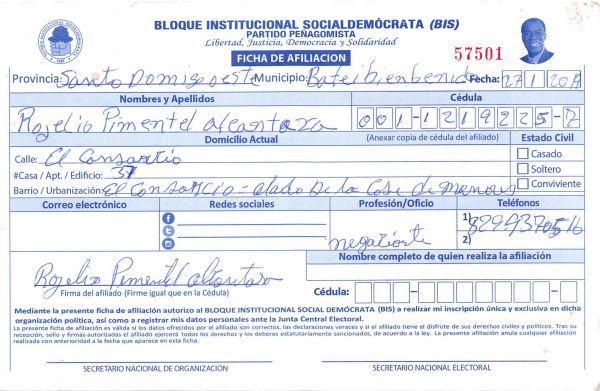 BLOQUE INSTITUCIONAL SOCIALDEMÓCRATA (BIS)
PARTIDO PEÑAGOMISTA
Libertad, Justicia, Democracia y Solidaridad
FICHA DE AFILIACION
57501
Provincia: Santo Domigo oeste Municipio: Bateibienbenid Fecha: 27 1 2019
Nombres y Apellidos Cédula
Rogelio Pimentel alcantara 001-1219225-2
Domicilio Actual (Anexar copia de cédula del afiliado) Estado Civil
Calle: El Consorcio Casado
#Casa / Apt. / Edificio: 37 Soltero
Barrio / Urbanización: El Consorcio - alado De la Cose de Conviviente
Correo electrónico Redes sociales Profesión/Oficio Teléfonos
1) 829-937-0516
negociante 2)
Nombre completo de quien realiza la afiliación
Rogelio Pimentel
Firma del afiliado (Firme igual que en la Cédula) Cédula:
Mediante la presente ficha de afiliación autorizo al BLOQUE INSTITUCIONAL SOCIAL DEMÓCRATA (BIS) a realizar mi inscripción única y exclusiva en dicha
organización política, así como a registrar mis datos personales ante la Junta Central Electoral.
La presente ficha de afiliación es válida si los datos ofrecidos por el afiliado son correctos, las declaraciones veraces y si el afiliado tiene el disfrute de sus derechos civiles y políticos. Tras su
recepción, sello y firmas autorizadas el afiliado ejercerá todos los derechos y los deberes estatutariamente sancionados, de acuerdo a la ley. La presente afiliación anula cualquier afiliación
realizada con anterioridad a la fecha que aparece en esta ficha.
SECRETARIO NACIONAL DE ORGANIZACIÓN SECRETARIO NACIONAL ELECTORAL